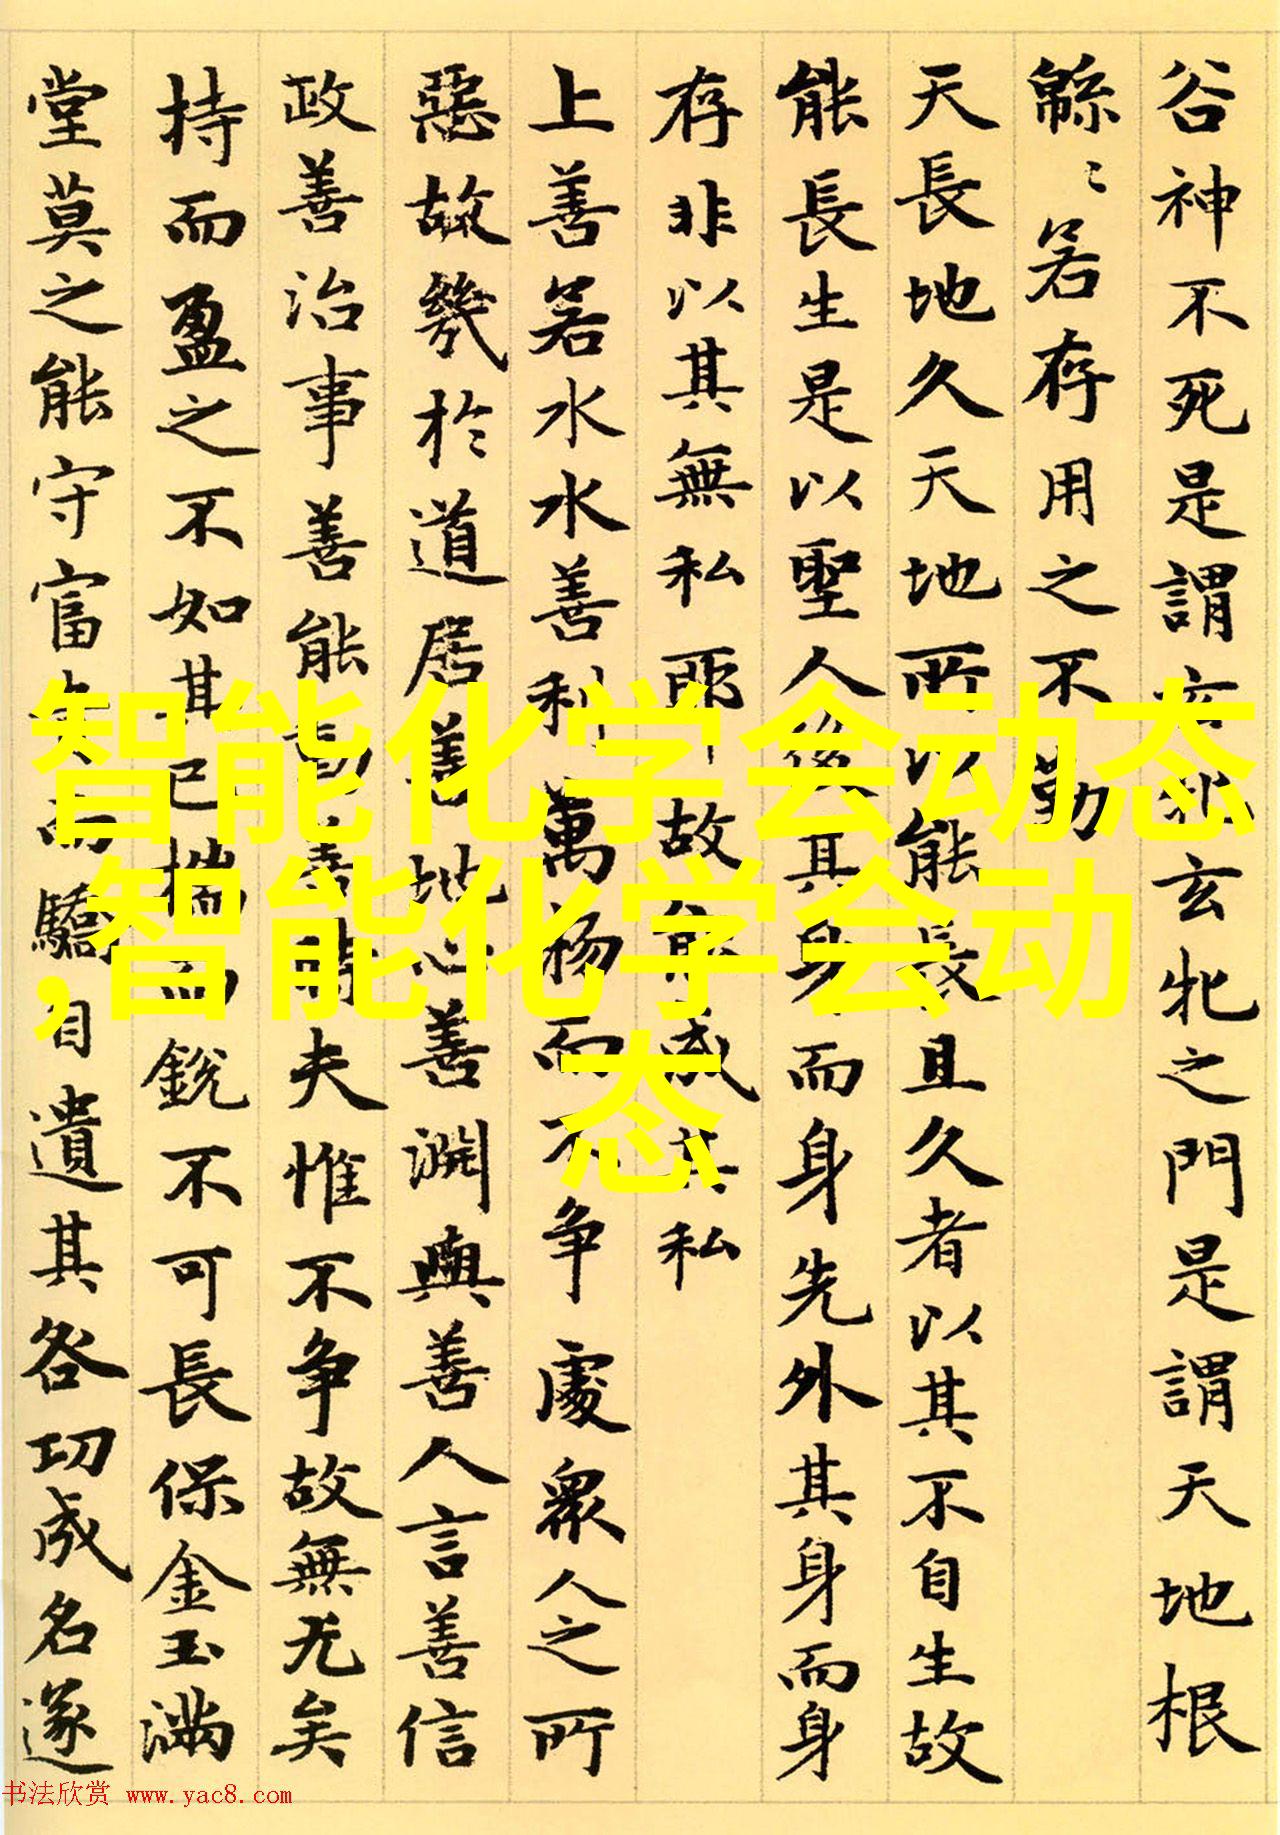 谷神不死是謂玄牝玄牝之門是謂天地根
緜〻若存用之不勤
天長地久天地所以能長且久者以其不自生故
能長生是以聖人後其身而身先外其身而身
存非以其無私耶故能成其私
上善若水水善利萬物而不争處衆人之所
惡故幾於道居善地心善淵與善人言善信
政善治事善能動善時夫惟不争故無尤矣
持而盈之不如其已揣而銳不可長保金玉滿
堂莫之能守富貴而驕自遺其咎功成名遂
智能化学会动态
,智能化学会动
态
书法欣赏 www.yac8.com